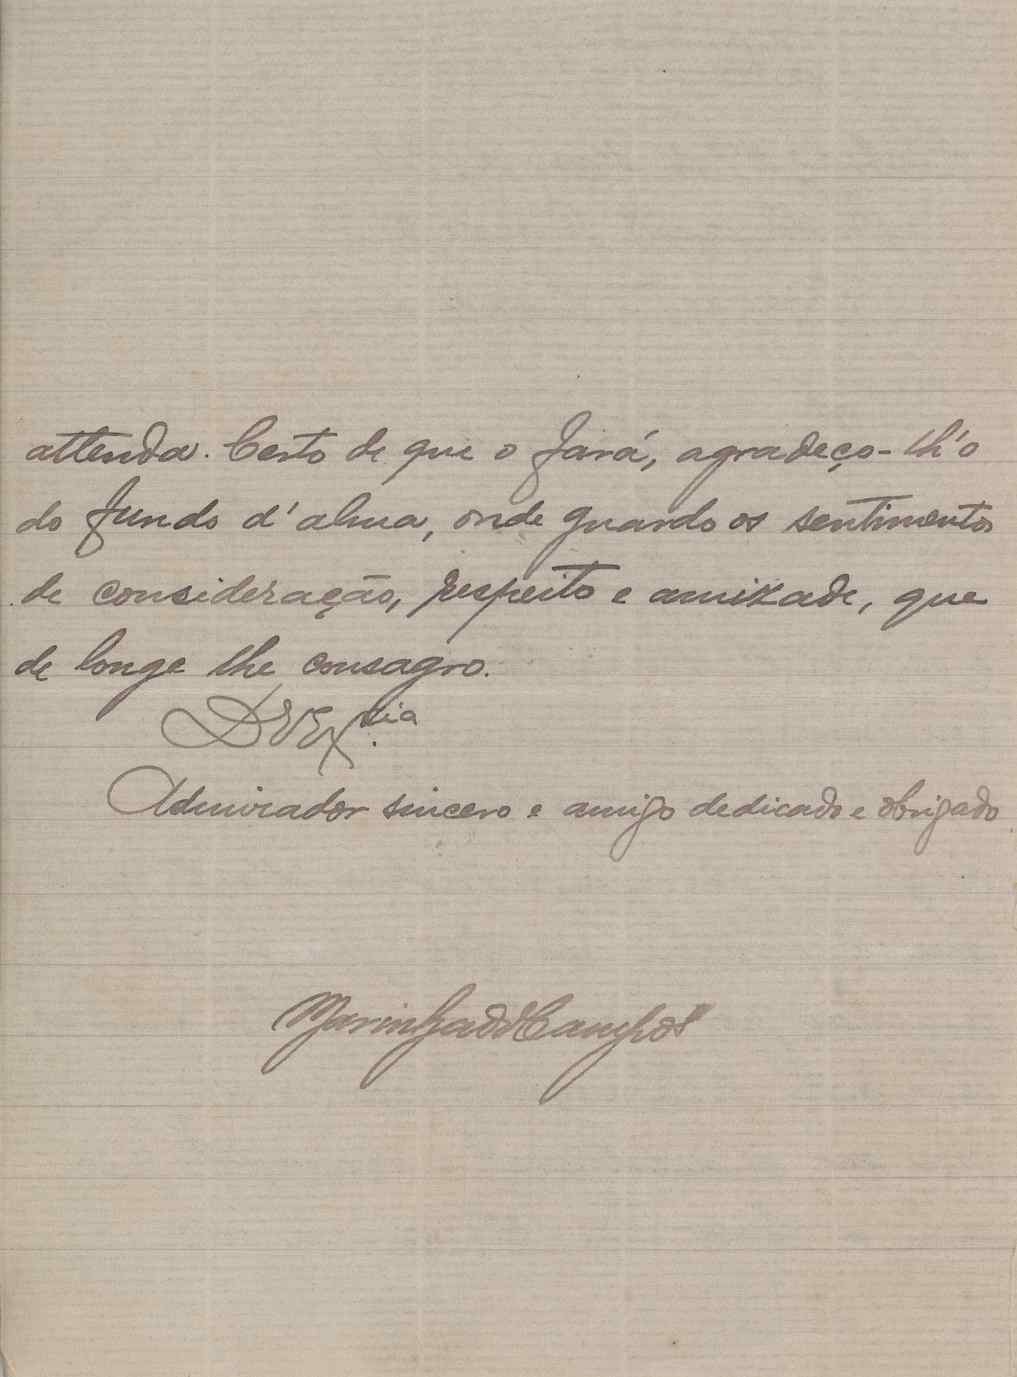 attenda. Certo de que o fará, agradeço-lh'o
do fundo d'alma, onde guardo os sentimentos
de consideração, respeito e amizade, que
de longe lhe consagro.
D V Ex.cia
Admirador sincero e amigo dedicado e obrigado
Campos